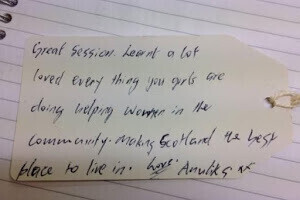 Great Session. Learnt a lot
loved every thing you girls are
doing helping women in the
community. Making Scotland the best
place to live in. Love. Anulika xx